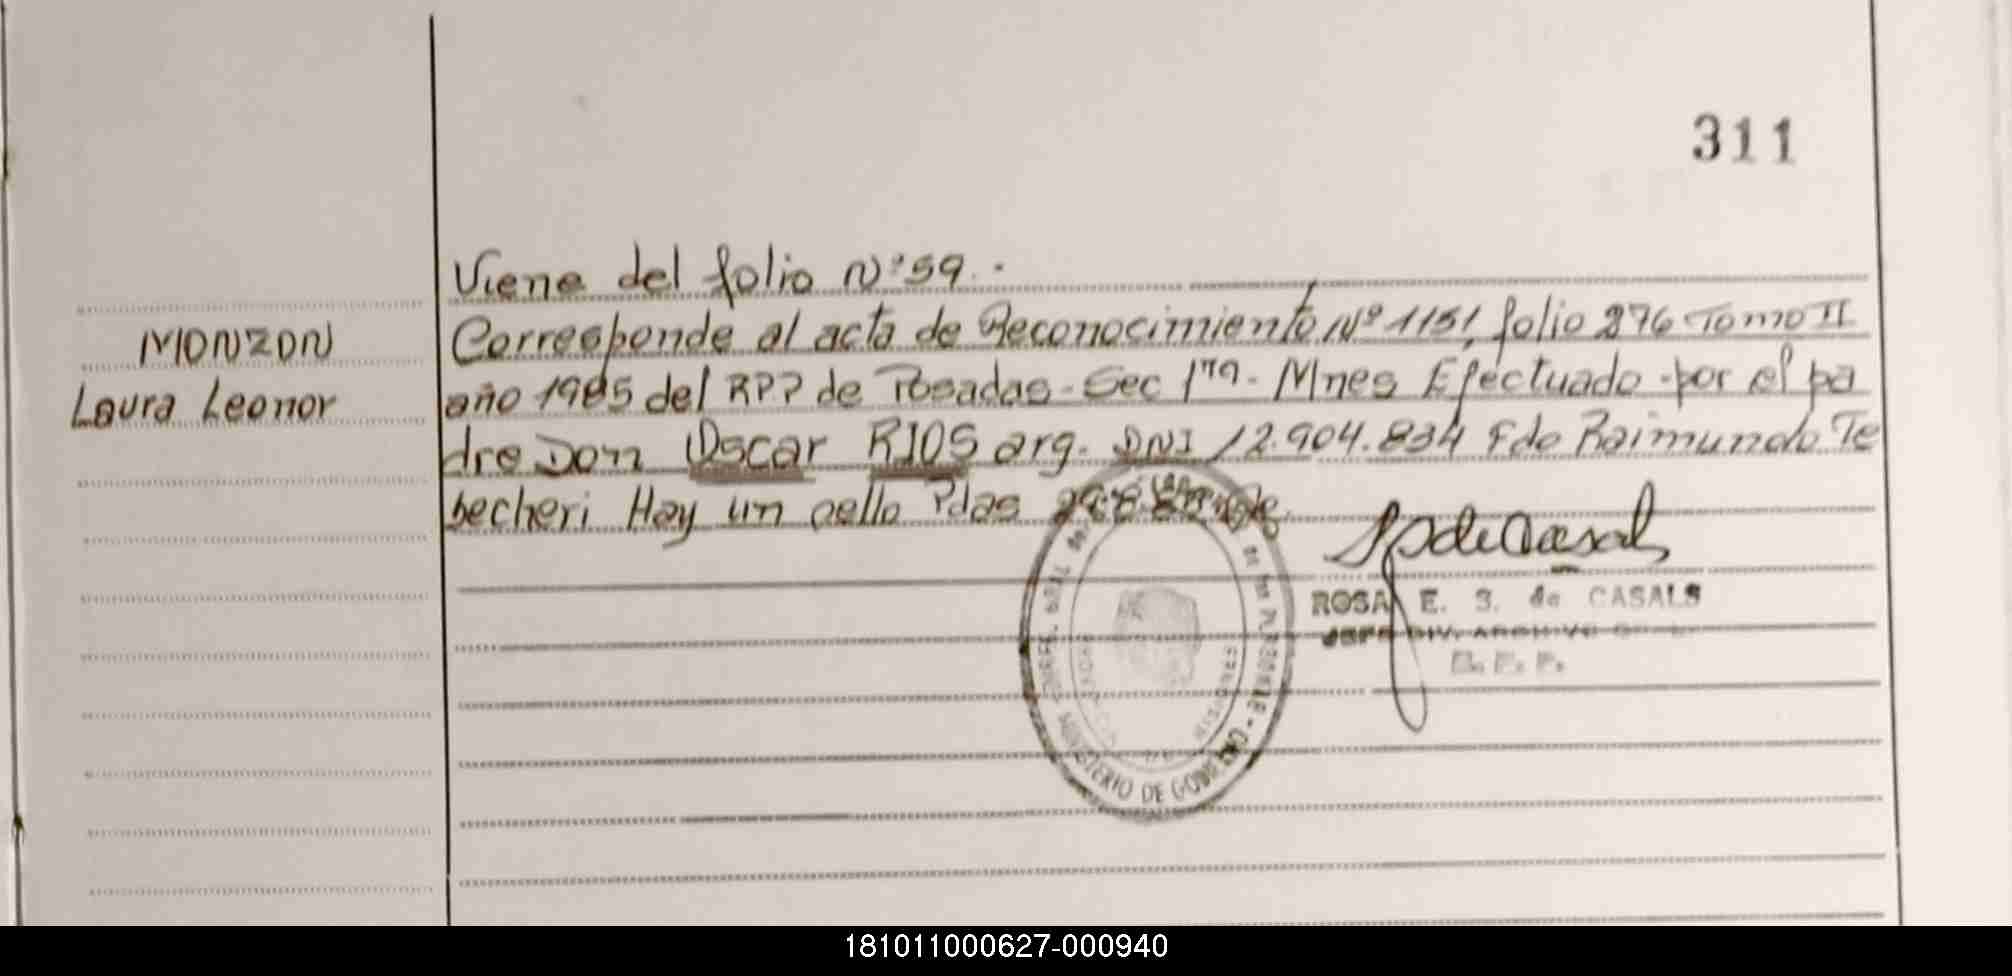 311
Viene del folio Nº 59.
MONZON
Laura Leonor
Corresponde al acta de Reconocimiento Nº 1151, folio 276 Tomo II
año 1985 del RPP de Posadas - Sec 1ra - Mnes Efectuado por el pa
dre Don Oscar RIOS arg. DNI 12.904.834 Fdo Raimundo Te
becheri Hay un sello Pdas
ROSA E. S. de CASALS
JEFE DIV. ARCHIVO
MINISTERIO DE GOBIERNO
DE LAS PERSONAS
181011000627-000940